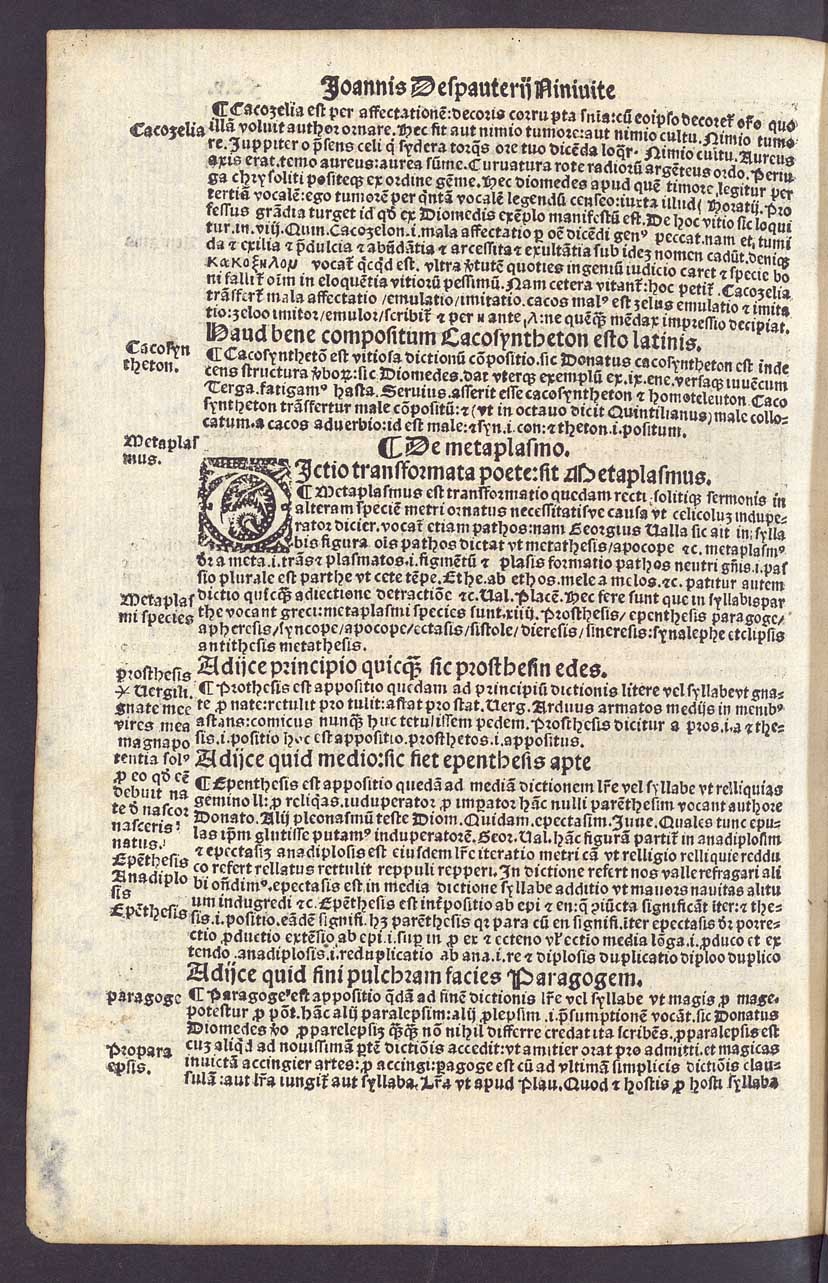 Joannis Despauterij Niniuite
¶ Cacozelia est per affectationē: decoris corrupta snīa: cū eo ipso decoret̄ oīo quo
Cacozelia
illā voluit author ornare. Hec fit aut nimio tumore: aut nimio cultu. Nimio tumo
re. Juppiter o p̄sens celi q̄ sydera torq̄s ore tuo dicēda loqr̄. Nimio cultu. Aureus
axis erat. temo aureus: aurea sūme. Curuatura rote radiorū argēteus ordo. Periu
ga chrysoliti positeqȝ ex ordine gēme. Hec diomedes apud quē timore, legitur per
tertiā vocalē: ego tumorē per q̄ntā vocalē legendū censeo: iuxta illud ( Horatij. Pro
fessus grādia turget id qd̄ ex Diomedis exēplo manifestū est. De hoc vitio sic loqui
tur. in. viij. Quin. Cacozelon .i. mala affectatio p̱ oē dicēdi genꝰ peccat. nam et, tumi
da ⁊ exilia ⁊ p̄dulcia ⁊ abūdātia ⁊ arcessita ⁊ exultātia sub idez nomen cadūt. deniqȝ
κακοξηλου vocat̄ qcqd est. vltra v̄tutē quoties ingeniū iudicio caret ⁊ specie bo
ni fallit̄ oīm in eloquētia vitiorū pessimū. Nam cetera vitant̄: hoc petit̄. Cacozelia
trāsfert̄ mala affectatio / emulatio / imitatio. cacos malꝰ est zelus emulatio ⁊ imita
tio: zeloo imitor / emulor / scribit̄ ⁊ per η ante, λ: ne quēqȝ mēdax impressio decipiat.
Haud bene compositum Cacosyntheton esto latinis.
Cacosyn
theton.
¶ Cacosynthetō est vitiosa dictionū cōpositio. sic Donatus cacosyntheton est inde
cens structura v̄boꝝ: sic Diomedes. dat vterqȝ exemplū ex. ix. ene. versaqȝ iuuēcum
Terga. fatigamꝰ hasta. Seruius. asserit esse cacosyntheton ⁊ homoteleuton. Caco
syntheton trāsfertur male cōpositū: ⁊ (vt in octauo dicit Quintilianus) male collo-
catum. a cacos aduerbio: id est male: ⁊ syn .i. con: ⁊ theton .i. positum.
Metaplas
mus.
¶ De metaplasmo.
Dictio transformata poete: fit Metaplasmus.
¶ Metaplasmus est transformatio quedam recti, solitiqȝ sermonis in
alteram speciē metri ornatus necessitatisve causa vt celicoluz indupe-
rator dicier. vocat̄ etiam pathos: nam Georgius Ualla sic ait in sylla
bis figura oīs pathos dictat vt metathesis / apocope ⁊c. metaplasmꝰ
dr̄ a meta .i. trās ⁊ plasmatos .i. figmētū ⁊ plasis formatio pathos neutri gn̄is .i. pas
sio plurale est parthe vt cete tēpe. Ethe. ab ethos. mele a melos. ⁊c. patitur autem
dictio quicqȝ adiectione detractiōe ⁊c. Ual. Placē. Hec fere sunt que in syllabis par
Metaplas
mi species
the vocant greci: metaplasmi species sunt. xiiij. Prosthesis / epenthesis paragoge /
apheresis / syncope / apocope / ectasis / sistole / dieresis / sineresis: synalephe et clipsis
antithesis metathesis.
Adijce principio quicq̄ȝ sic prosthesin edes.
prosthesis
Uergili.
gnate mee
vires mea
magna po
tentia solꝰ
p̱ eo qd̄ cē
debuit na
te d̄ nascor
nasceris
natus.
¶ Prothesis est appositio quedam ad principiū dictionis litere vel syllabe vt gna-
te p̱ nate: retulit pro tulit: astat pro stat. Uerg. Arduus armatos medijs in menibꝰ
astans: comicus nunqȝ huc tetulissem pedem. Prosthesis dicitur a pros .i. a ⁊ the-
sis .i. positio hoc est appositio. prosthetos .i. appositus.
Adijce quid medio: sic fiet epenthesis apte
¶ Epenthesis est appositio quedā ad mediā dictionem lr̄e vel syllabe vt relliquias
gemino ll: p̱ reliq̄as. iuduperator p̱ imp̱ator hāc nulli parēthesim vocant authore
Donato. Alij pleonasmū teste Diom. Quidam. epectasim. Juue. Quales tunc epu-
las ip̄m glutisse putamꝰ induperatorē. Geor. Ual. hāc figurā partit̄ in anadiplosim
Epēthesis
Anadiplo
sis
Epēthesis
⁊ epectasiȝ anadiplosis est eiusdem lr̄e iteratio metri cā vt relligio relliquie reddu
co refert rellatus rettulit reppuli repperi. In dictione refert nos valle refragari ali
bi on̄dimꝰ. epectasis est. in media dictione syllabe additio vt mauors nauitas alitu
um indugredi ⁊c. Epēthesis est int̄positio ab epi ⁊ en: q̄ xiūcta significāt iter: ⁊ the-
sis .i. positio. eādē signifi. hȝ parēthesis qr para cū en signifi. iter epectasis dr̄ porre-
ctio p̱ductio extēsio ab epi .i. sup̱ in p̱ ex ⁊ ecteno vl̄ ectio media lōga .i. p̱duco et ex
tendo. anadiplosis .i. reduplicatio ab ana .i. re ⁊ diplosis duplicatio diploo duplico
Adijce quid fini pulchram facies Paragogem.
paragoge
¶ Paragoge est appositio qdā ad finē dictionis lr̄e vel syllabe vt magis p̱ mage.
potestur p̱ pōt. hāc alij paralepsim: alij p̱lepsim .i. p̄sumptionē vocāt. sic Donatus
Diomedes v̄o p̱parelepsiȝ q̄ȝq̄ȝ nō nihil differre credat ita scribēs. p̱paralepsis est
Propara
epsis.
cuȝ aliqd ad nouissimā p̱tē dictiōis accedit: vt amitier orat pro admitti. et magicas
inuictā accingier artes: p̱ accingi: p̱agoge est cū ad vltimā simplicis dictiōis clau-
sulā: aut lr̄a iungit̄ aut syllaba. Lr̄a vt apud Plau. Quod ⁊ hostis p̱ hosti syllaba